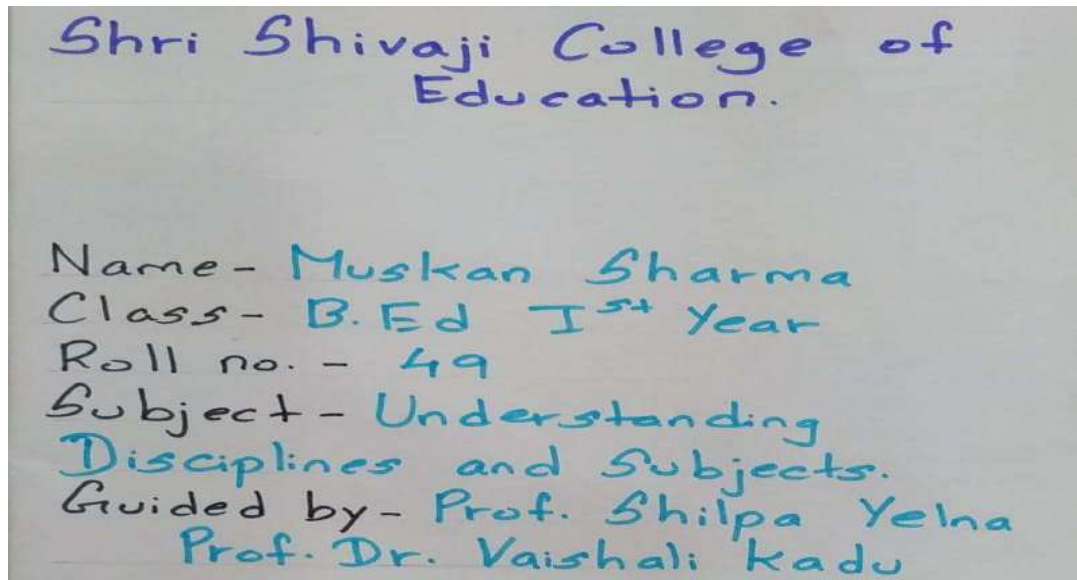 Shri Shivaji College of
Education.
Name- Muskan Sharma
Class- B.Ed Ist Year
Roll no. - 49
Subject- Understanding
Disciplines and Subjects.
Guided by- Prof. Shilpa Yelna
Prof. Dr. Vaishali Kadu